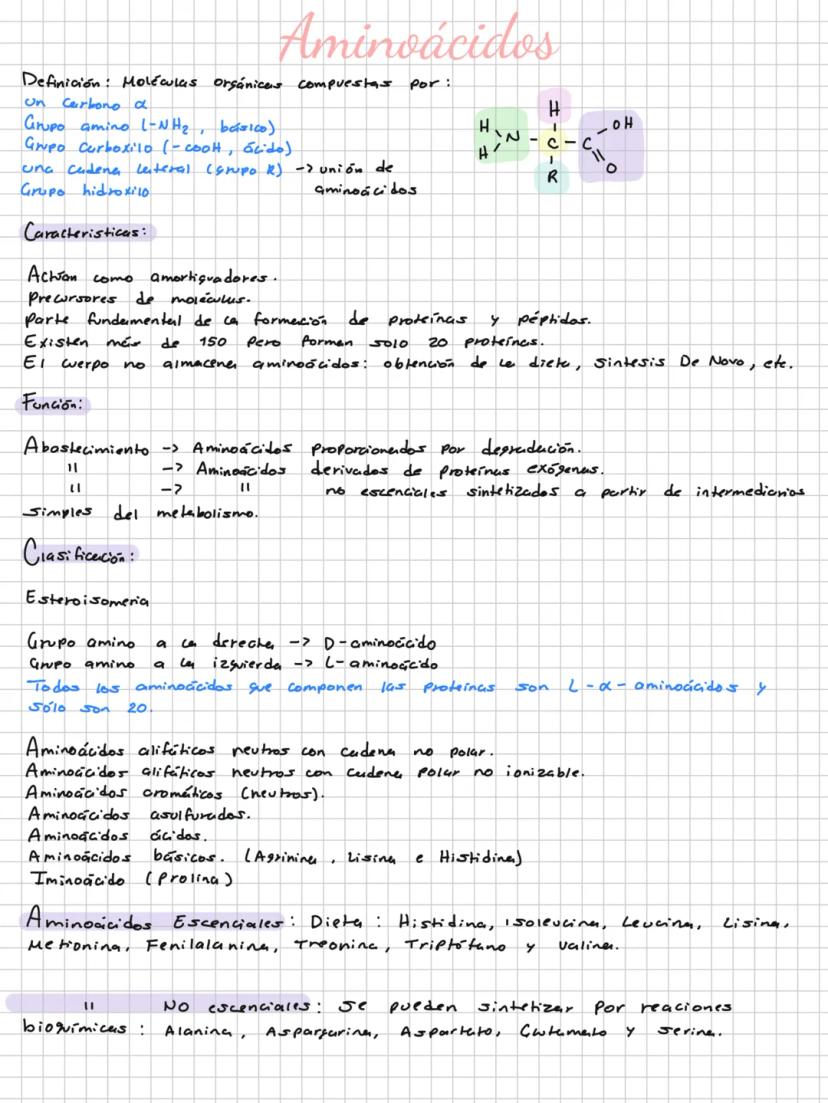 Aminoácidos
Definición: Moléculas orgánicas compuestas por:
un carbono α
Grupo amino (-NH₂, básico)
Grupo Carboxilo (-COOH, ácido)
una cadena lateral (grupo R) -> unión de
aminoácidos
Grupo hidroxilo
H
H H N - C - C - OH
R O
Características:
Actúan como amortiguadores.
Precursores de moléculas.
Parte fundamental de la formación de proteínas y péptidos.
Existen más de 150 pero forman solo 20 proteínas.
El cuerpo no almacena aminoácidos: obtención de la dieta, sintesis De Novo, etc.
Función:
Abastecimiento -> Aminoácidos proporcionados por degradación.
" -> Aminoácidos derivados de proteínas exógenas.
" -> " no escenciales sintetizados a partir de intermediarios
simples del metabolismo.
Clasificación:
Esteroisomeria
Grupo amino a la derecha -> D-aminoácido
Grupo amino a la izquierda -> L-aminoácido
Todos los aminoácidos que componen las proteínas son L-α-aminoácidos y
sólo son 20.
Aminoácidos alifáticos neutros con cadena no polar.
Aminoácidos alifáticos neutros con cadena polar no ionizable.
Aminoácidos aromáticos (neutros).
Aminoácidos asulfurados.
Aminoácidos ácidos.
Aminoácidos básicos. (Agrinina, Lisina e Histidina)
Iminoácido (Prolina)
Aminoácidos Escenciales: Dieta: Histidina, Isoleucina, Leucina, Lisina,
Metionina, Fenilalanina, Treonina, Triptófano y Valina.
" No escenciales: Se pueden sintetizar por reaciones
bioquímicas: Alanina, Aspargarina, Aspartato, Glutamato y Serina.